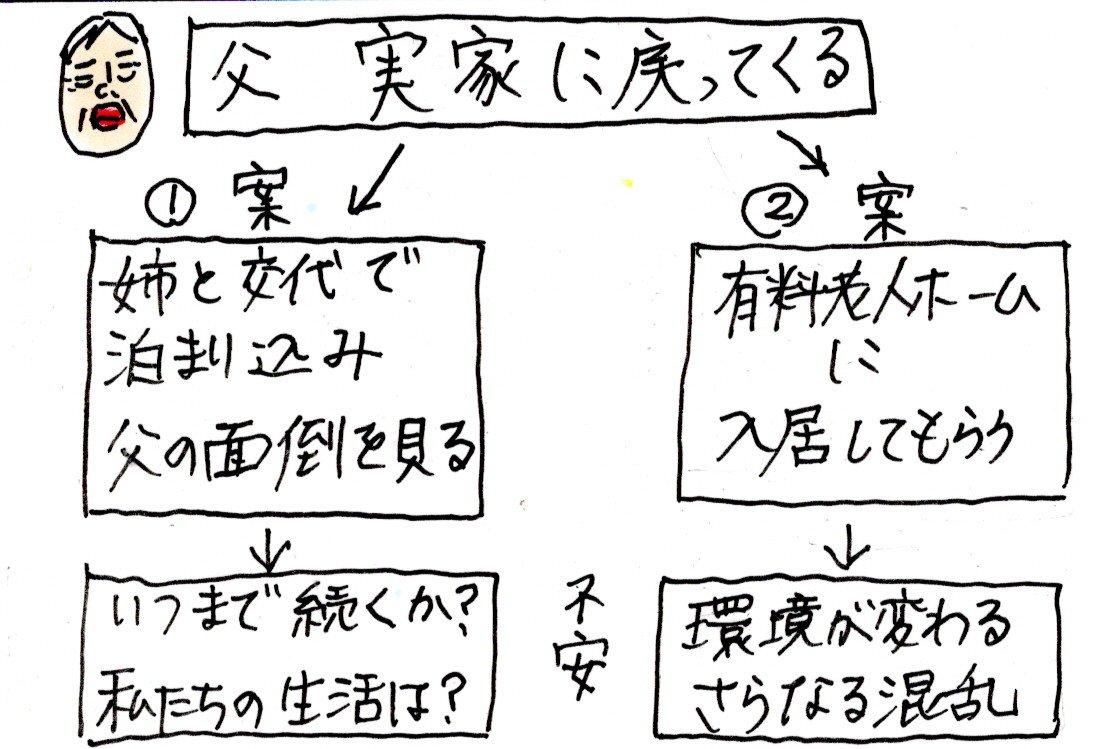 父 実家に戻ってくる
① 案
姉と交代で
泊まり込み
父の面倒を見る
いつまで続くか?
私たちの生活は?
不安
② 案
有料老人ホーム
に
入居してもらう
環境が変わる
さらなる混乱